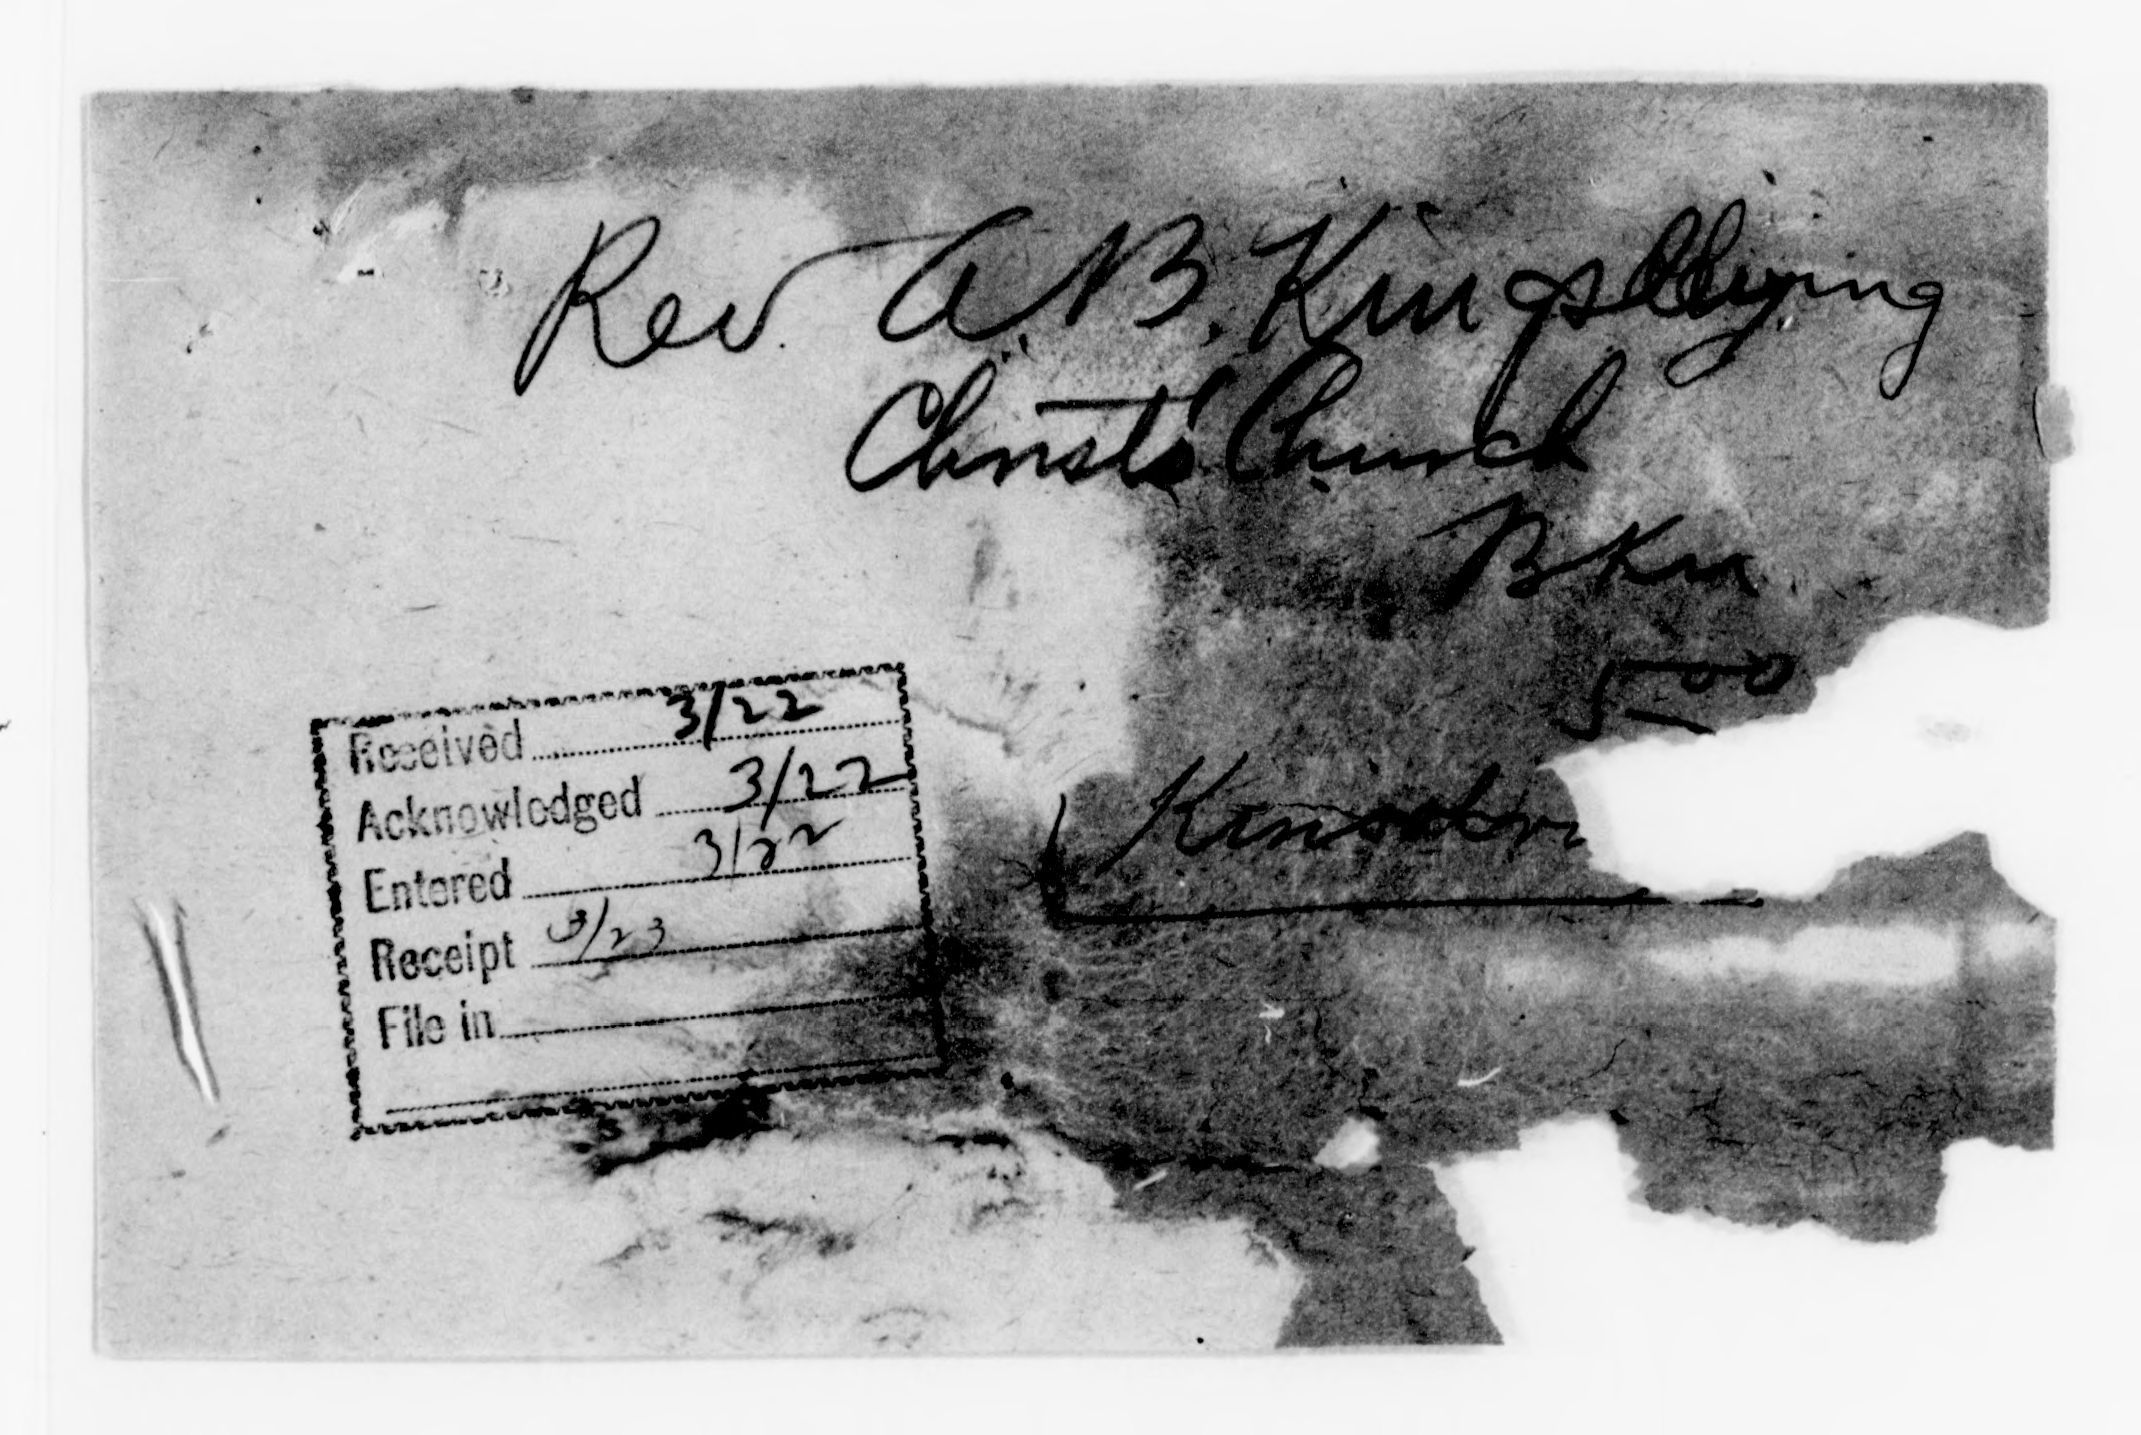 Rev. A. B. Kingsllying
Christ's Church
BKln.
500
Received 3/22
Acknowledged 3/22
Entered 3/22
Receipt 3/23
File in